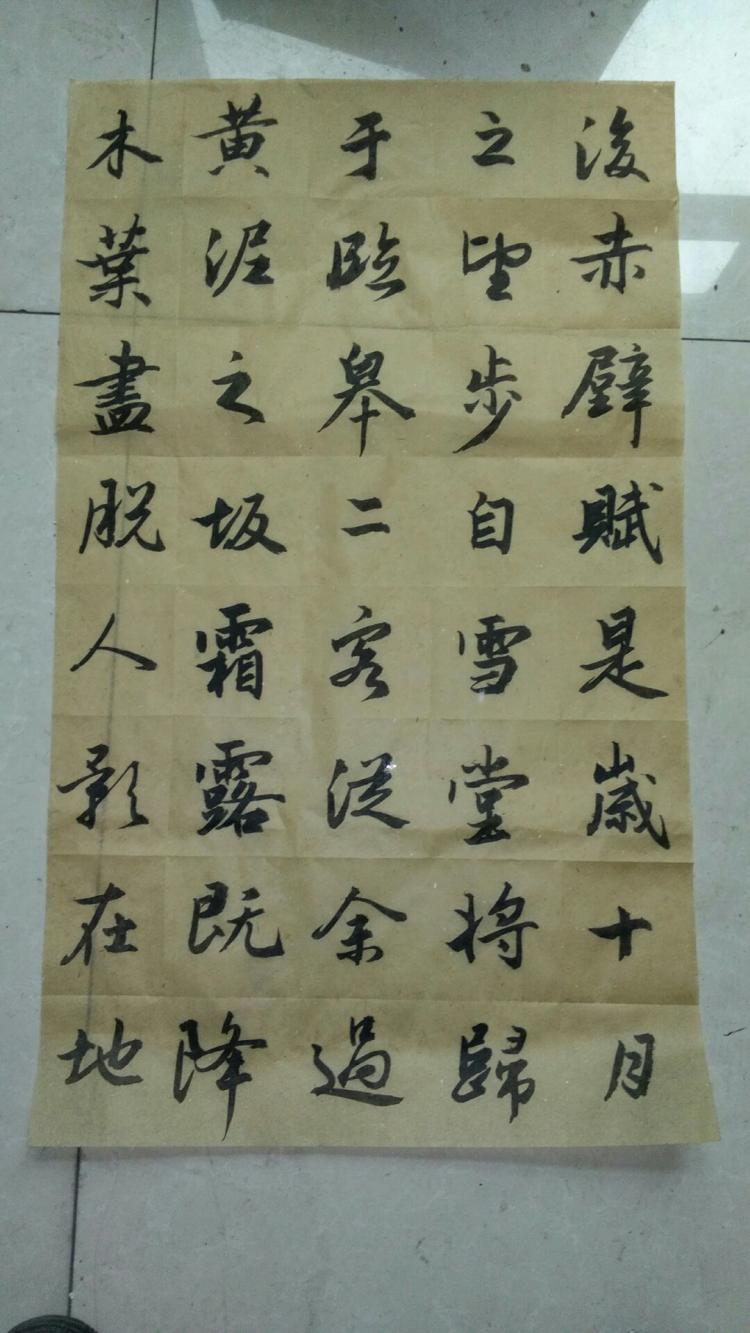 後赤壁賦是歲十月
之望步自雪堂將歸
于臨皋二客從余過
黄泥之坂霜露既降
木葉盡脱人影在地